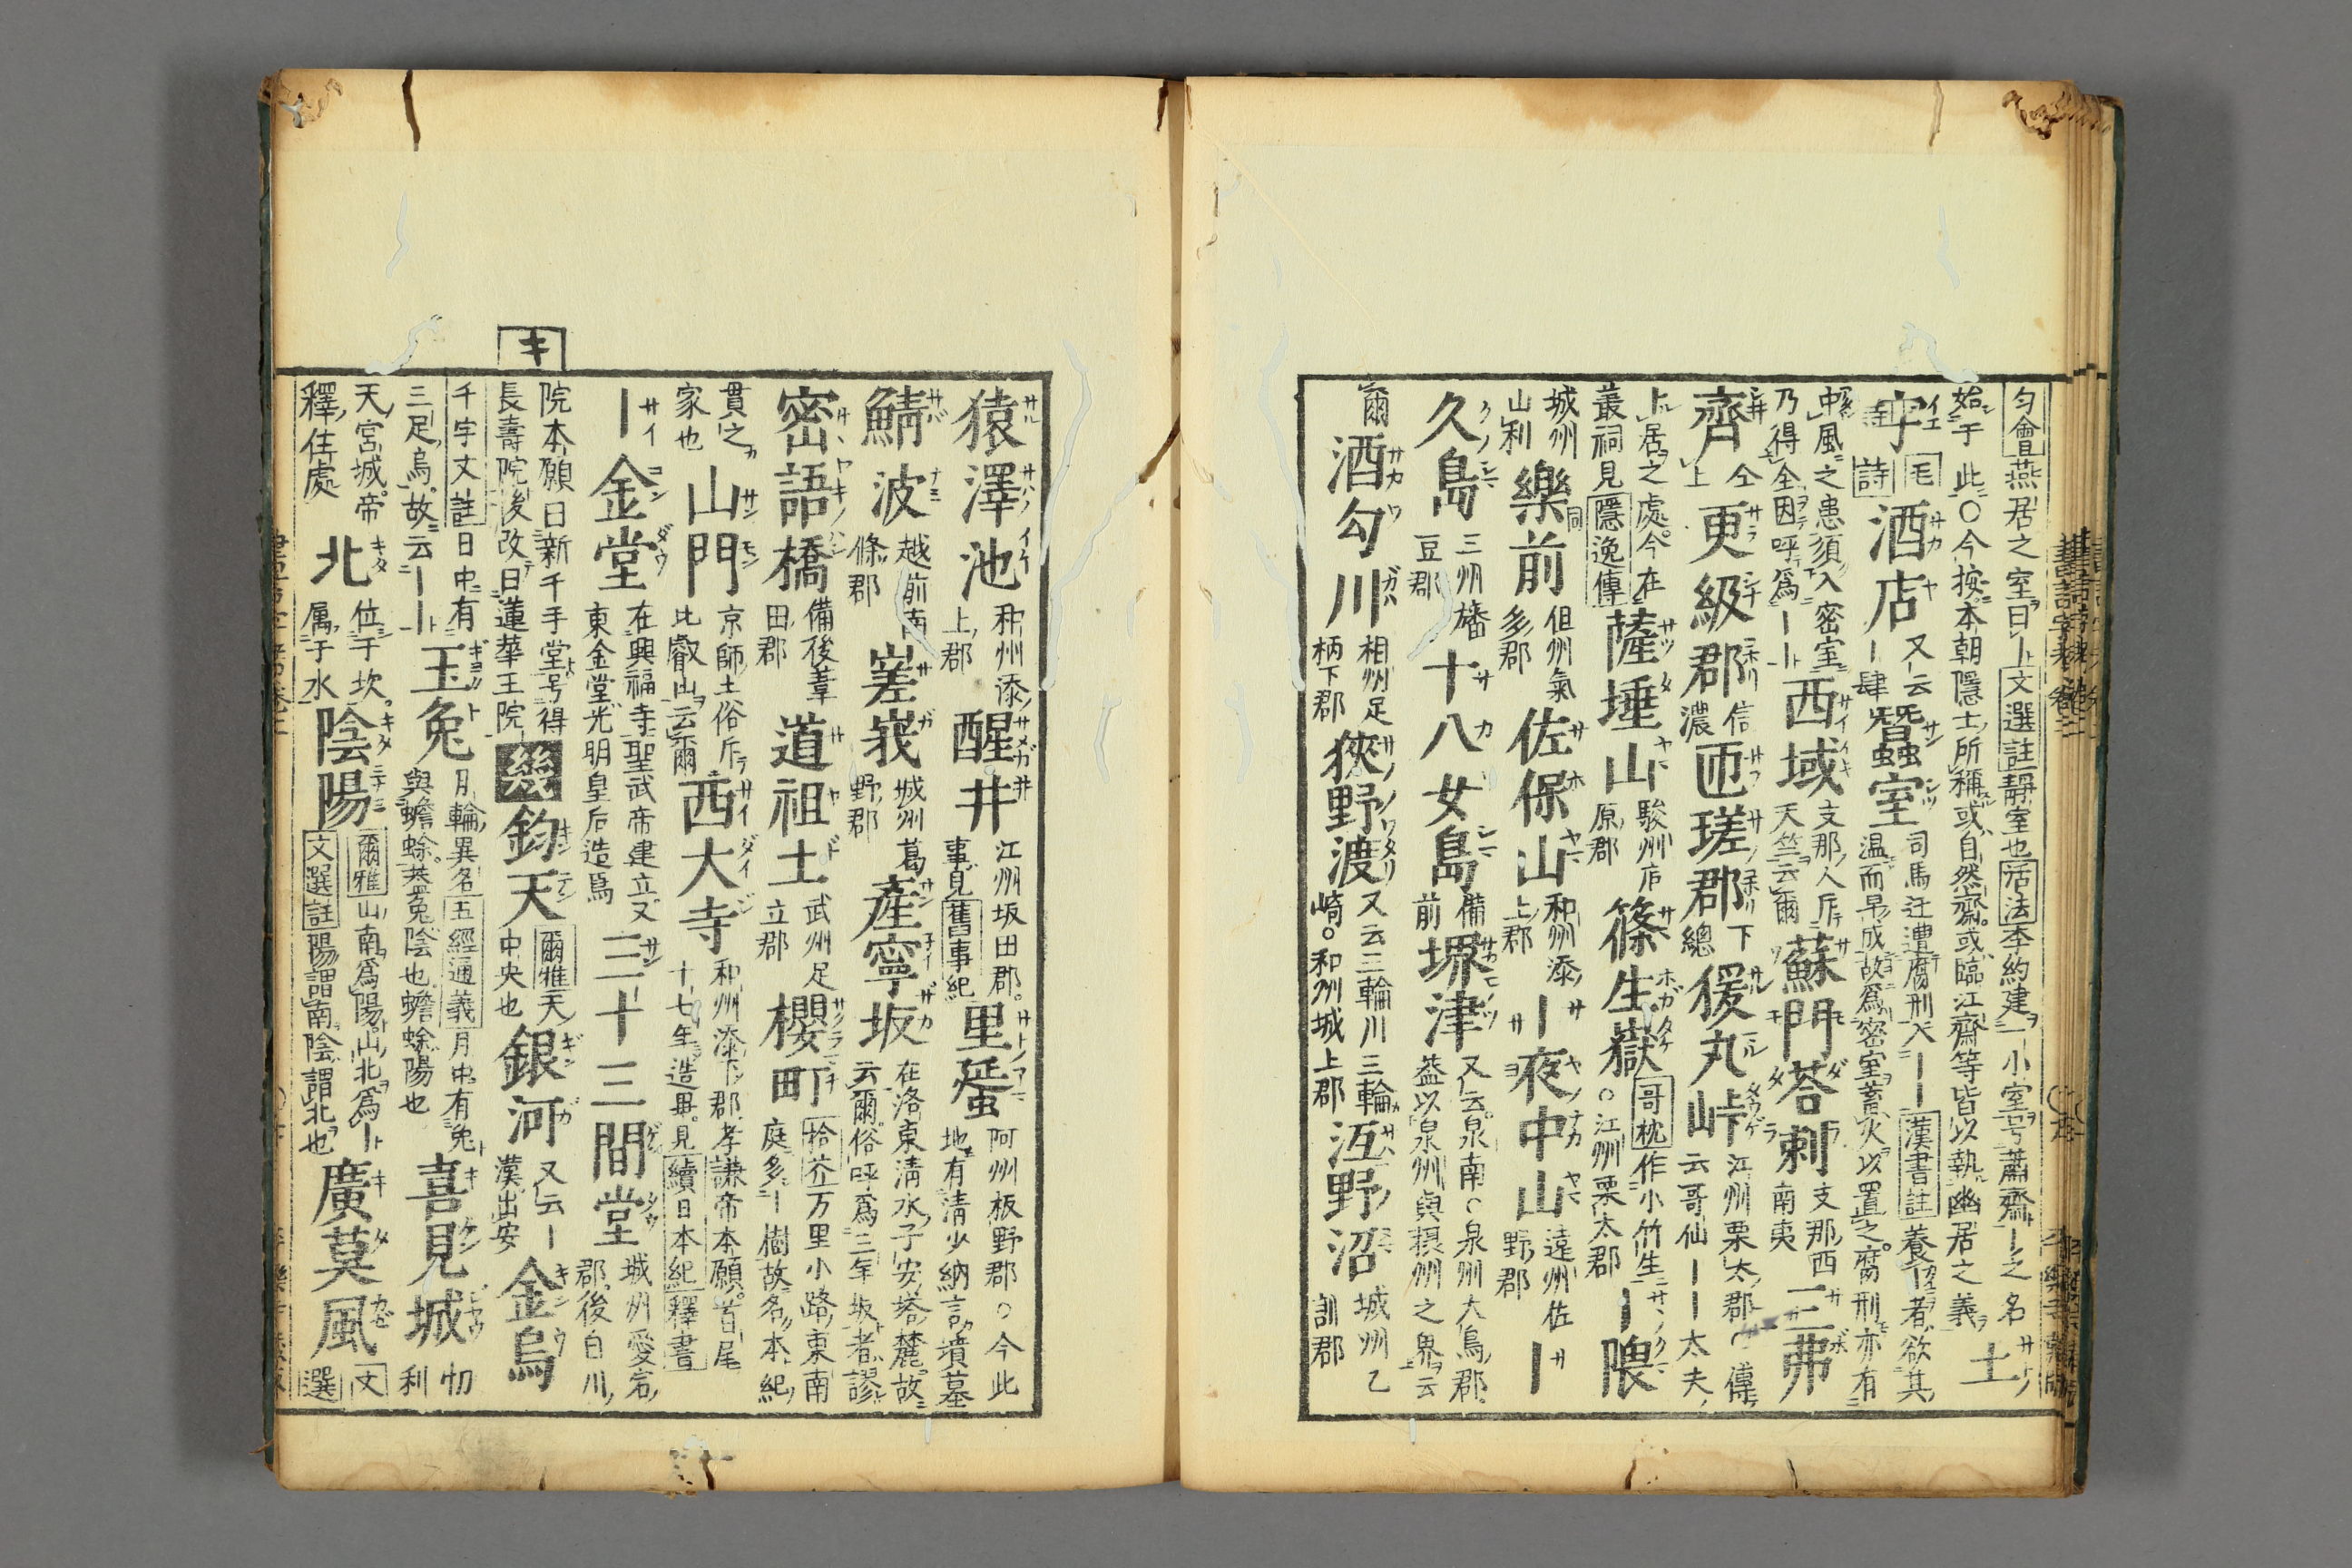 匀會燕居之室曰｜文選註靜室也活法李約建一小室号蕭齋｜之名 土
始于此○今按本朝隱士所稱或自然齋或臨江齋等皆以執幽居之義
字 毛詩 酒店 又云｜肆 蠶室 司馬迁遭腐刑入｜｜漢書註養｜者欲其温而早成故爲密室蓄火以置之腐刑亦有
中風之患須入密室乃得全因呼爲｜｜ 西域 支那人斥天竺云爾 蘇門荅剌 支那西南夷 三弗
齊 仝上 更級郡 信濃 匝瑳郡 下總 猨丸峠 江州栗太郡○傳云哥仙｜｜太夫
上居之處今在叢祠見隱逸傳 薩埵山 駿州庵原郡 篠生嶽 哥枕作小竹生○江州栗太郡 ｜隈
城州 山利 樂前 但州氣多郡 佐保山 和州添上郡 ｜夜中山 遠州佐野郡 ｜
久島 三州幡豆郡 十八女島 備前 堺津 又云泉南○泉州大鳥郡 蓋以泉州與摂州之界云
爾 酒匂川 相州足柄下郡 狹野渡 又云三輪川三輪崎○和州城上郡 沍野沼 城州乙訓郡
猿澤池 和州添上郡 醒井 江州坂田郡 事見舊事紀 里蜑 阿州板野郡○今此地有清少納言墳墓
鯖波 越前南條郡 嵳峩 城州葛野郡 產寧坂 在洛東清水子安塔麓故云爾俗呼爲三年坂者謬
密語橋 備後葦田郡 道祖土 武州足立郡 櫻町 拾芥万里小路東南庭多｜樹故名本紀
貫之家也 山門 京師土俗斥比叡山云爾 西大寺 和州添下郡孝謙帝本願首尾十七年造畢見續日本紀釋書
｜金堂 在興福寺聖武帝建立又東金堂光明皇后造焉 三十三間堂 城州愛宕郡後白川
院本願曰新千手堂号得長壽院後改曰蓮華王院
キ
鈞天 爾雅天中央也 銀河 又云｜漢出安 金烏
千字文註日中有三足烏故云｜｜ 玉兔 月輪異名五經通義月中有兔與蟾蜍並兔陰也蟾蜍陽也 喜見城 忉利
天宮城帝釋住處 北 位于坎属于水 陰陽 爾雅山南爲陽山北爲｜文選註陽謂南陰謂北也 廣莫風 文選